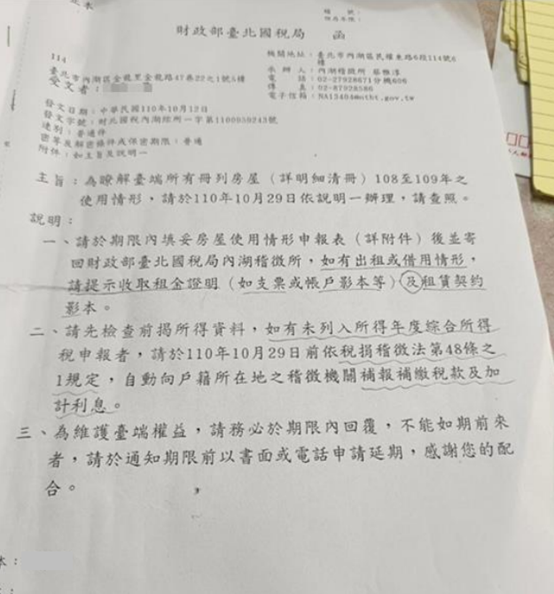 本
檔　號：
保存年限：
財政部臺北國稅局　函
機關地址：臺北市內湖區民權東路6段114號6樓
承 辦 人：內湖稽徵所
電　　話：02-27928671分機606
傳　　真：02-87928586
電子信箱：
114
臺北市內湖區金龍里金龍路47巷22之1號5樓
受文者：
發文日期：中華民國110年10月12日
發文字號：財北國稅內湖綜所一字第1100859243號
速別：普通件
密等及解密條件或保密期限：普通
附件：如主旨及說明一
主旨：為瞭解臺端所有冊列房屋（詳明細清冊）108至109年之
使用情形，請於110年10月29日依說明一辦理，請查照。
說明：
一、請於期限內填妥房屋使用情形申報表（詳附件）後並寄
回財政部臺北國稅局內湖稽徵所，如有出租或借用情形，
請提示收取租金證明（如支票或帳戶影本等）及租賃契約
影本。
二、請先檢查前揭所得資料，如有未列入所得年度綜合所得
稅申報者，請於110年10月29日前依稅捐稽徵法第48條之
1規定，自動向戶籍所在地之稽徵機關補報補繳稅款及加
計利息。
三、為維護臺端權益，請務必於期限內回覆，不能如期前來
者，請於通知期限前以書面或電話申請延期，感謝您的配
合。
本：